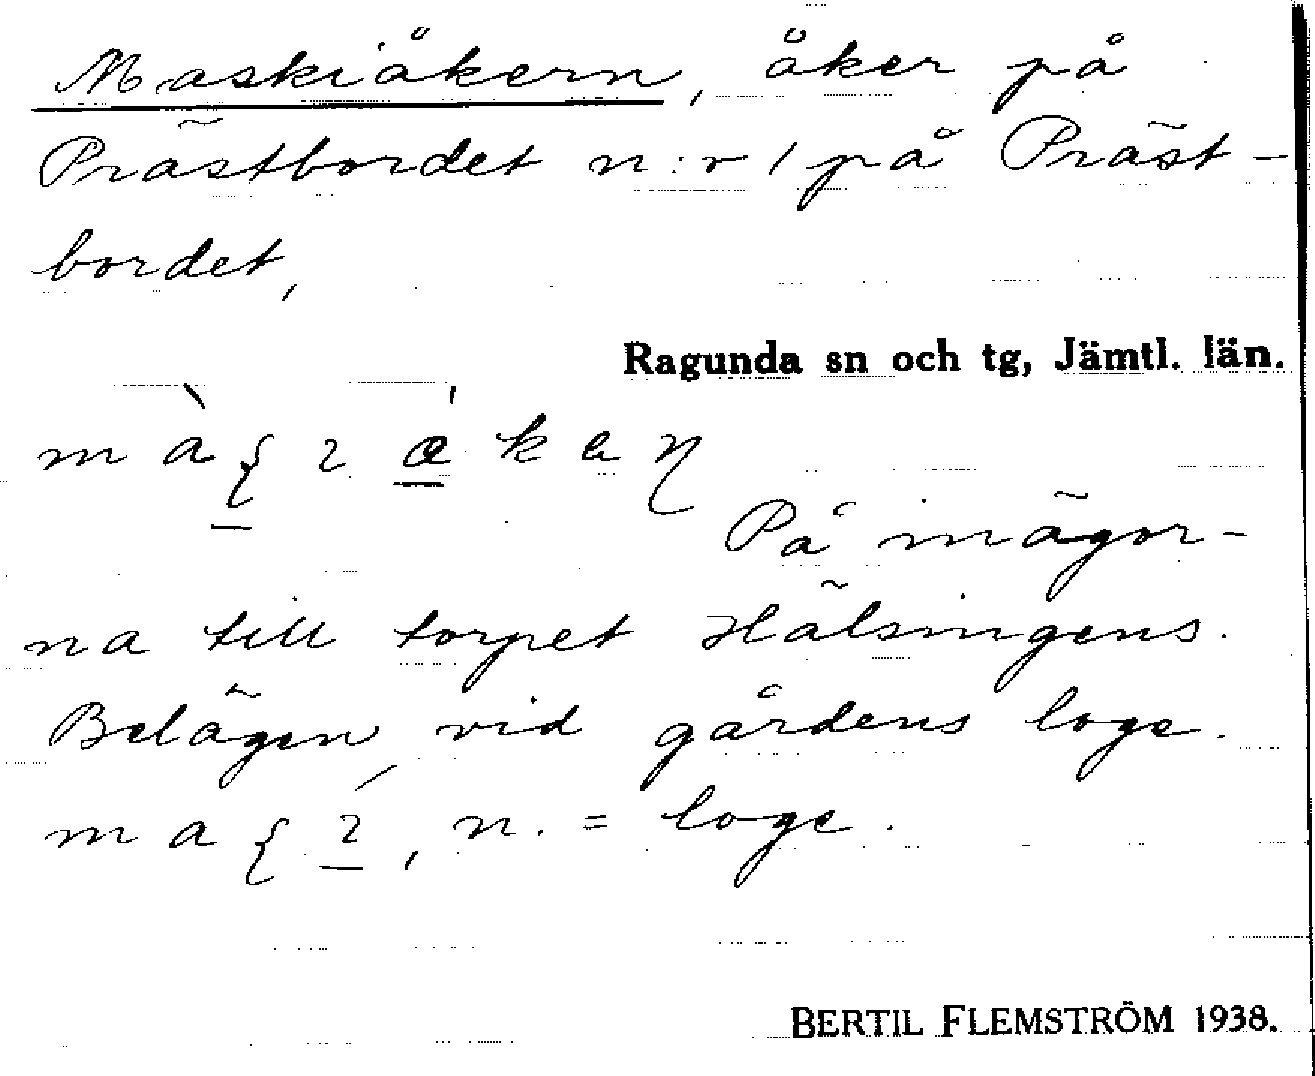 Maskiåkern, åker på
Prästbordet n:r 1 på Präst-
bordet,
Ragunda sn och tg, Jämtl. län.
På inägor-
na till torpet Hälsingens.
Belägen vid gårdens loge.
n. = loge.
BERTIL FLEMSTRÖM 1938.